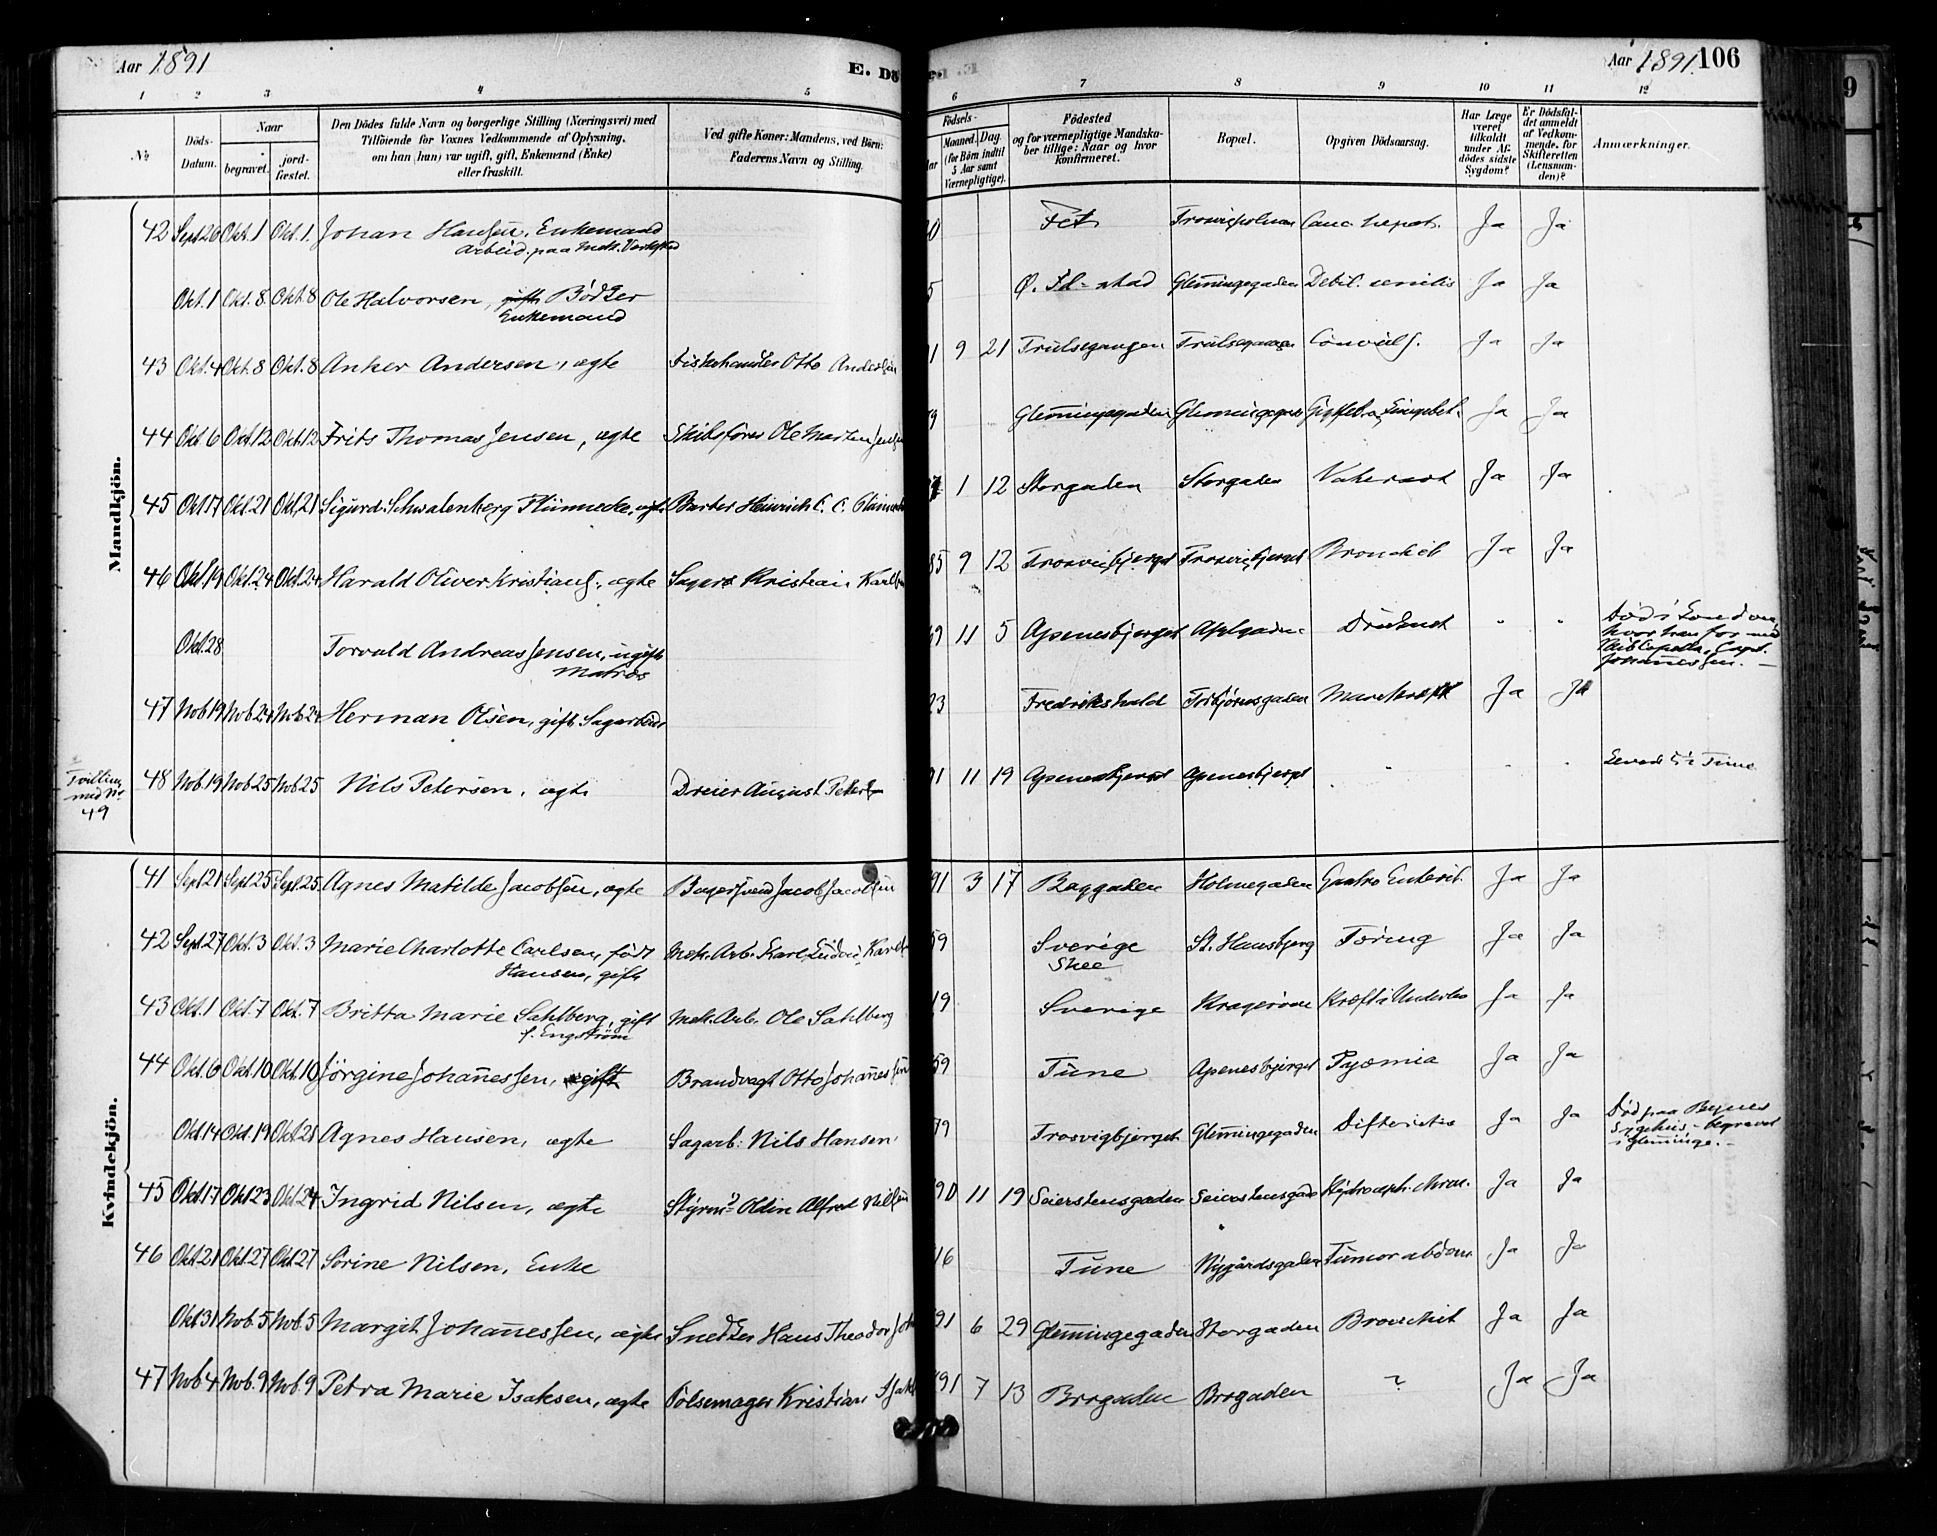 Aar 1891
E. Dö
1 2 3 4 5
№
Döds-Datum.
Naar
begravet.
jordfæstet.
Den Dödes fulde Navn og borgerlige Stilling (Næringsvei) med
Tilföiende for Voxnes Vedkommende af Oplysning,
om han (hun) var ugift, gift, Enkemand (Enke)
eller fraskilt.
Ved gifte Koner: Mandens, ved Börn:
Faderens Navn og Stilling.
Aar 1891. 106
6 7 8 9 10 11 12
Födsels-
Aar
Maaned.
Dag.
(for Börn indtil
5 Aar samt
Værnepligtige).
Födested
og for værnepligtige Mandskaber tillige: Naar og hvor
Konfirmeret.
Bopæl.
Opgiven Dödsaarsag.
Har Læge
været
tilkaldt
under Afdödes sidste
Sygdom?
Er Dödsfaldet anmeldt
af Vedkommende for
Skifteretten
(Lensmanden)?
Anmerkninger.
Mandkjön.
42 Sept 26 Okt. 1 Okt. 1. Johan Hansen, Enkemand
Arbeid. paa Mek. Verksted
0 Fet Canc. hepat. Ja Ja
Okt. 1 Okt. 8 Okt. 8 Ole Halvorsen, gift Bødker
Enkemand
5 Ø. Fd-stad Glemmingegaden Debil. senilis Ja Ja
43 Okt. 4 Okt. 8 Okt. 8 Anker Andersen, ægte Fiskehandler Otto Andersen
1 9 21 Trulsegangen Trulsegangen Convuls. Ja Ja
44 Okt 6 Okt. 12 Okt. 12 Frits Thomas Jensen, ægte Skibsfører Ole Martin Jensen
9 Glemmingegaden Glemmingegaden Ja Ja
45 Okt 17 Okt. 21 Okt. 21 Sigurd Schwalenberg Plünnecke, ægte Barber Heinrich C. C. Plünnecke
1 12 Storgaden Storgaden Ja Ja
46 Okt. 19 Okt. 24 Okt. 24 Harald Oliver Kristians., ægte Sagarb Kristian Karlsen
85 9 12 Trosvigbjerget Trosvigbjerget Bronchit Ja Ja
Okt. 28 Torvald Andreas Jensen, ugift
Matros
69 11 5 Apenesbjerget Druknet " " Død i London,
hvor han for med
Skib Capella, Capt.
Johannessen.
47 Nob 19 Nob 24 Nob. 24 Herman Olsen, gift Sagarbeider
23 Fredrikshald Torbjørnsgaden Mavekræft Ja Ja
Tvilling
med Nr.
49
48 Nob. 19 Nob 25 Nob 25 Nils Petersen, ægte Dreier August Petersen
91 11 19 Apenesbjerget Apenesbjerget " " " Leved 5½ Time
Kvindekjön.
41 Sept 21 Sept 25 Sept. 25 Agnes Matilde Jacobsen, ægte Bagersvend Jacob Jacobsen
91 3 17 Baggaden Holmegaden Gastro Enterit. Ja Ja
42 Sept. 27 Okt. 3 Okt. 3 Marie Charlotte Carlsen, født
Hansen, gift
Mek. Arb. Karl Ludvi Karls
59 Sverige
Skee
St. Hansbjerg Tæring Ja Ja
43 Okt. 1 Okt. 7 Okt. 7 Britta Marie Sahlberg, gift
f. Engström
Mek. Arb. Ole Sahlberg
19 Sverige Kragerøen Kræft i Underliv Ja Ja
44 Okt. 6 Okt. 10 Okt. 10 Jörgine Johannessen, gift Brandvagt Otto Johannessen
59 Tune Apenesbjerget Pyæmia Ja Ja
Okt. 14 Okt. 19 Agnes Hansen, ægte Sagarb. Nils Hansen
79 Trosvigbjerget Glemmingegaden Difteritis Ja Ja Død paa Byens
Sygehus - begravet
i Glemminge. -
45 Okt. 17 Okt 23 Okt 24 Ingrid Nilsen, ægte Styrm. Oldin Alfred Nilsen
90 11 19 Seierstensgaden Seierstensgade Hydroceph. chron. Ja Ja
46 Okt. 21 Okt. 27 Okt. 27 Sörine Nilsen, Enke
16 Tune Nygårdsgaden Tumor abdom. Ja Ja
Okt 31 Nob. 5 Nob. 5 Margit Johannessen, ægte Snedker Hans Theodor Joh
91 6 29 Glemmingegaden Storgaden Bronchit Ja Ja
47 Nob 4 Nob. 9 Nob. 9 Petra Marie Isaksen, ægte Pölsemager Kristian Isaks
91 7 13 Brogaden Brogaden ? Ja Ja